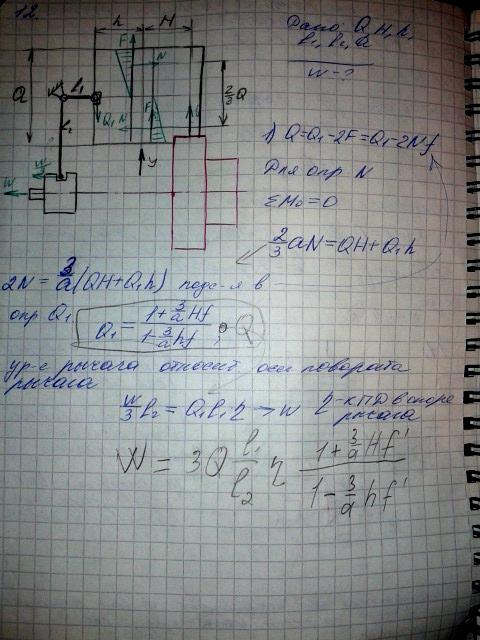 12.
h H
F
N
Q l₁ Q₁ N F 2/3 Q
l₂
W y
Дано: Q, H, h,
l₁, l₂, a
W - ?
1) Q = Q₁ - 2F = Q₁ - 2Nf
Для опр N
ΣM₀ = 0
2/3 aN = QH + Q₁h
2N = 3/a (QH + Q₁h) подс-я в
опр Q₁
Q₁ = (1 + 3/a Hf) / (1 - 3/a hf) · Q
ур-е рычага относит. оси поворота
рычага
W/3 l₂ = Q₁ l₁ η → W η - КПД в опоре
рычага
W = 3Q l₁/l₂ η (1 + 3/a Hf') / (1 - 3/a hf')